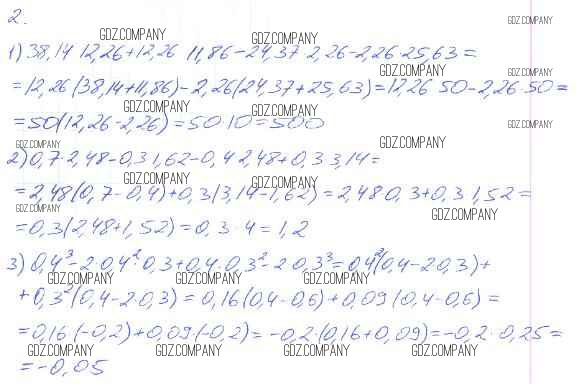 2.
1) 38,14 12,26+12,26 11,86-24,37·2,26-2,26·25,63=
=12,26(38,14+11,86)-2,26(24,37+25,63)=12,26 50-2,26·50=
=50(12,26-2,26)=50·10=500
2) 0,7·2,48-0,3 1,62-0,4 2,48+0,3 3,14=
=2,48(0,7-0,4)+0,3(3,14-1,62)=2,48 0,3+0,3 1,52=
=0,3(2,48+1,52)=0,3·4=1,2
3) 0,4³-2·0,4²·0,3+0,4·0,3²-2·0,3³=0,4²(0,4-2·0,3)+
+0,3²(0,4-2·0,3)=0,16(0,4-0,6)+0,09(0,4-0,6)=
=0,16(-0,2)+0,09·(-0,2)=-0,2·(0,16+0,09)=-0,2·0,25=
=-0,05
GDZ.COMPANY GDZ.COMPANY GDZ.COMPANY
GDZ.COMPANY GDZ.COMPANY
GDZ.COMPANY GDZ.COMPANY GDZ.COMPANY
GDZ.COMPANY GDZ.COMPANY
GDZ.COMPANY GDZ.COMPANY
GDZ.COMPANY GDZ.COMPANY
GDZ.COMPANY GDZ.COMPANY GDZ.COMPANY
GDZ.COMPANY GDZ.COMPANY GDZ.COMPANY GDZ.COMPANY